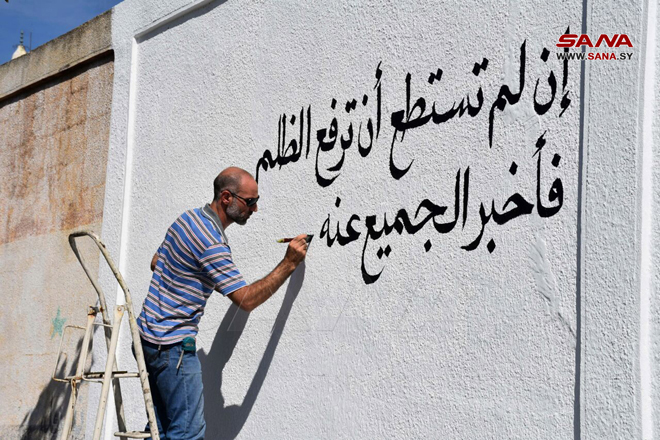 SANA
WWW.SANA.SY
إن لم تستطع أن ترفع الظلم
فأخبر الجميع عنه